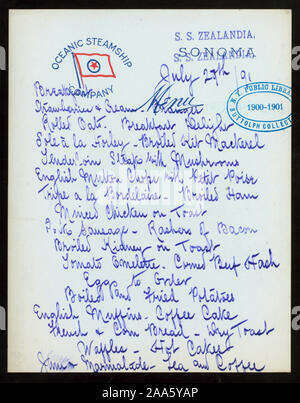 S. S. ZEALANDIA,
OCEANIC STEAMSHIP COMPANY
SONOMA
S. S. ZEALANDIA,
July 27th '01
Menu
Breakfast
Strawberries & Cream
Rolled Oats Breakfast Delight
Sole à la Horley - Broiled Kit Mackerel
Tenderloin Steaks with Mushrooms
English Mutton Chops with Petit Pois
Tripe a la Bordelaise - Broiled Ham
Minced Chicken on Toast
Pork Sausage - Rashers of Bacon
Broiled Kidney on Toast
Tomato Omelette - Corned Beef Hash
Eggs to Order
Boiled and Fried Potatoes
English Muffins - Coffee Cake
French & Corn Bread - Dry Toast
Waffles - Hot Cakes
Marmalade - Tea and Coffee
N.Y. PUBLIC LIBRARY
1900-1901
BUTTOLPH COLLECTION
alamy
Image ID: 2AA5YAP
www.alamy.com